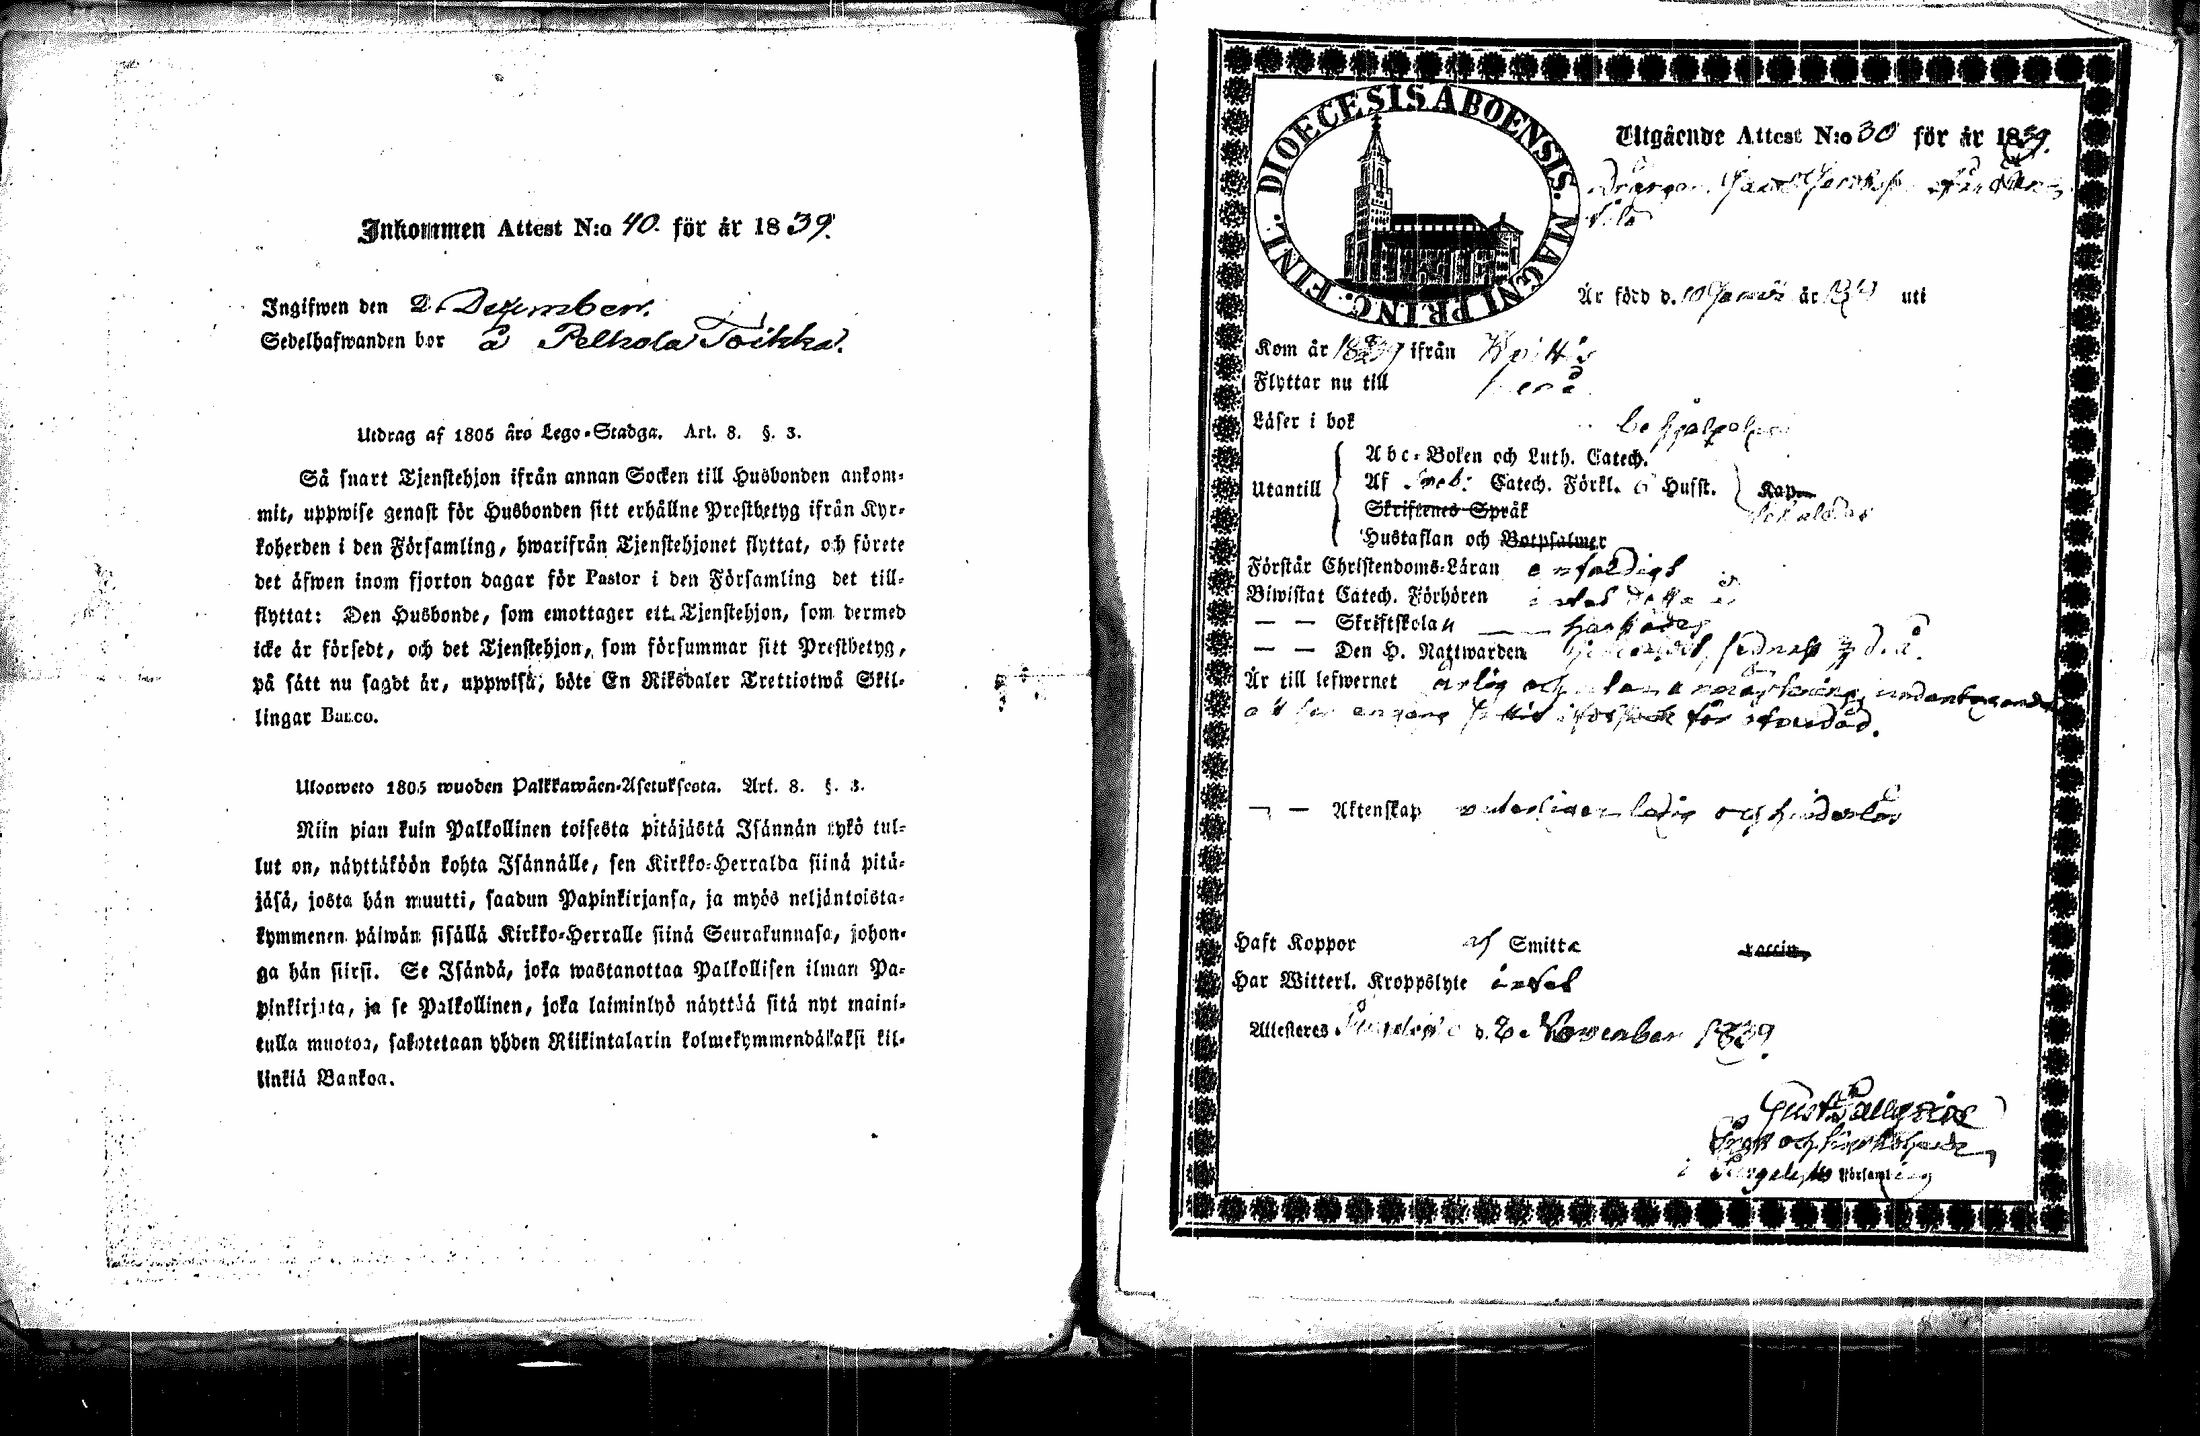 Inkommen Attest N:o 40. för år 1839.
Ingifwen den 2. Dezember.
Sedelhafwanden bor å Pelkola Toikka.
Utdrag af 1805 års Lego-Stadga. Art. 8. §. 3.
Så snart Tjenstehjon ifrån annan Socken till Husbonden ankom-
mit, uppwise genast för Husbonden sitt erhållne Prestbetyg ifrån Kyr-
koherden i den Församling, hwarifrån Tjenstehjonet flyttat, och förete
det äfwen inom fjorton dagar för Pastor i den Församling det till-
flyttat: Den Husbonde, som emottager ett Tjenstehjon, som dermed
icke är försedt, och det Tjenstehjon, som försummar sitt Prestbetyg,
på sätt nu sagdt är, uppwisa, böte En Riksdaler Trettiotwå Skil-
lingar Banco.
Ulosweto 1805 wuoden Palkkawäen-Asetuksesta. Art. 8. §. 3.
Niin pian kuin Palkollinen toisesta pitäjästä Isännän tykö tul-
lut on, näyttäköön kohta Isännälle, sen Kirkko-Herralda siinä pitä-
jäsä, josta hän muutti, saadun Papinkirjansa, ja myös neljäntoista-
kymmenen päiwän sisällä Kirkko-Herralle siinä Seurakunnasa, johon-
ga hän siirsi. Se Isändä, joka wastanottaa Palkollisen ilman Pa-
pinkirjata, ja se Palkollinen, joka laiminlyö näyttää sitä nyt maini-
tulla muotoa, sakotetaan yhden Riikintalarin kolmekymmendäkaksi kil-
linkiä Bankoa.
DIOECESIS ABOENSIS. MAGNI PRINC. FINL.
Utgående Attest N:o 30 för år 1839.
Drängen
Är född d. 10 år uti
Kom år 1837 ifrån
Flyttar nu till
Läser i bok behjelpeligen
Abc-Boken och Luth. Catech.
Utantill Af Sveb: Catech. Förkl. 6 Hufst. Kap.
Skriftenes Språk
Hustaflan och Botpsalmer
Förstår Christendoms-Läran enfaldigt
Biwistat Catech. Förhören detta år
— — Skriftskolan
— — Den H. Nattwarden sednast d. å.
Är till lefwernet ärlig och utan anmärkning, undantagande
att för stöld.
— — Äktenskap veterligen ledig och hinderlös
Haft Koppor af Smitta vaccin
Har Witterl. Kroppslyte intet
Attesteras d. 2 November 1839
Gust
Prost och Kyrkoherde
i Församling